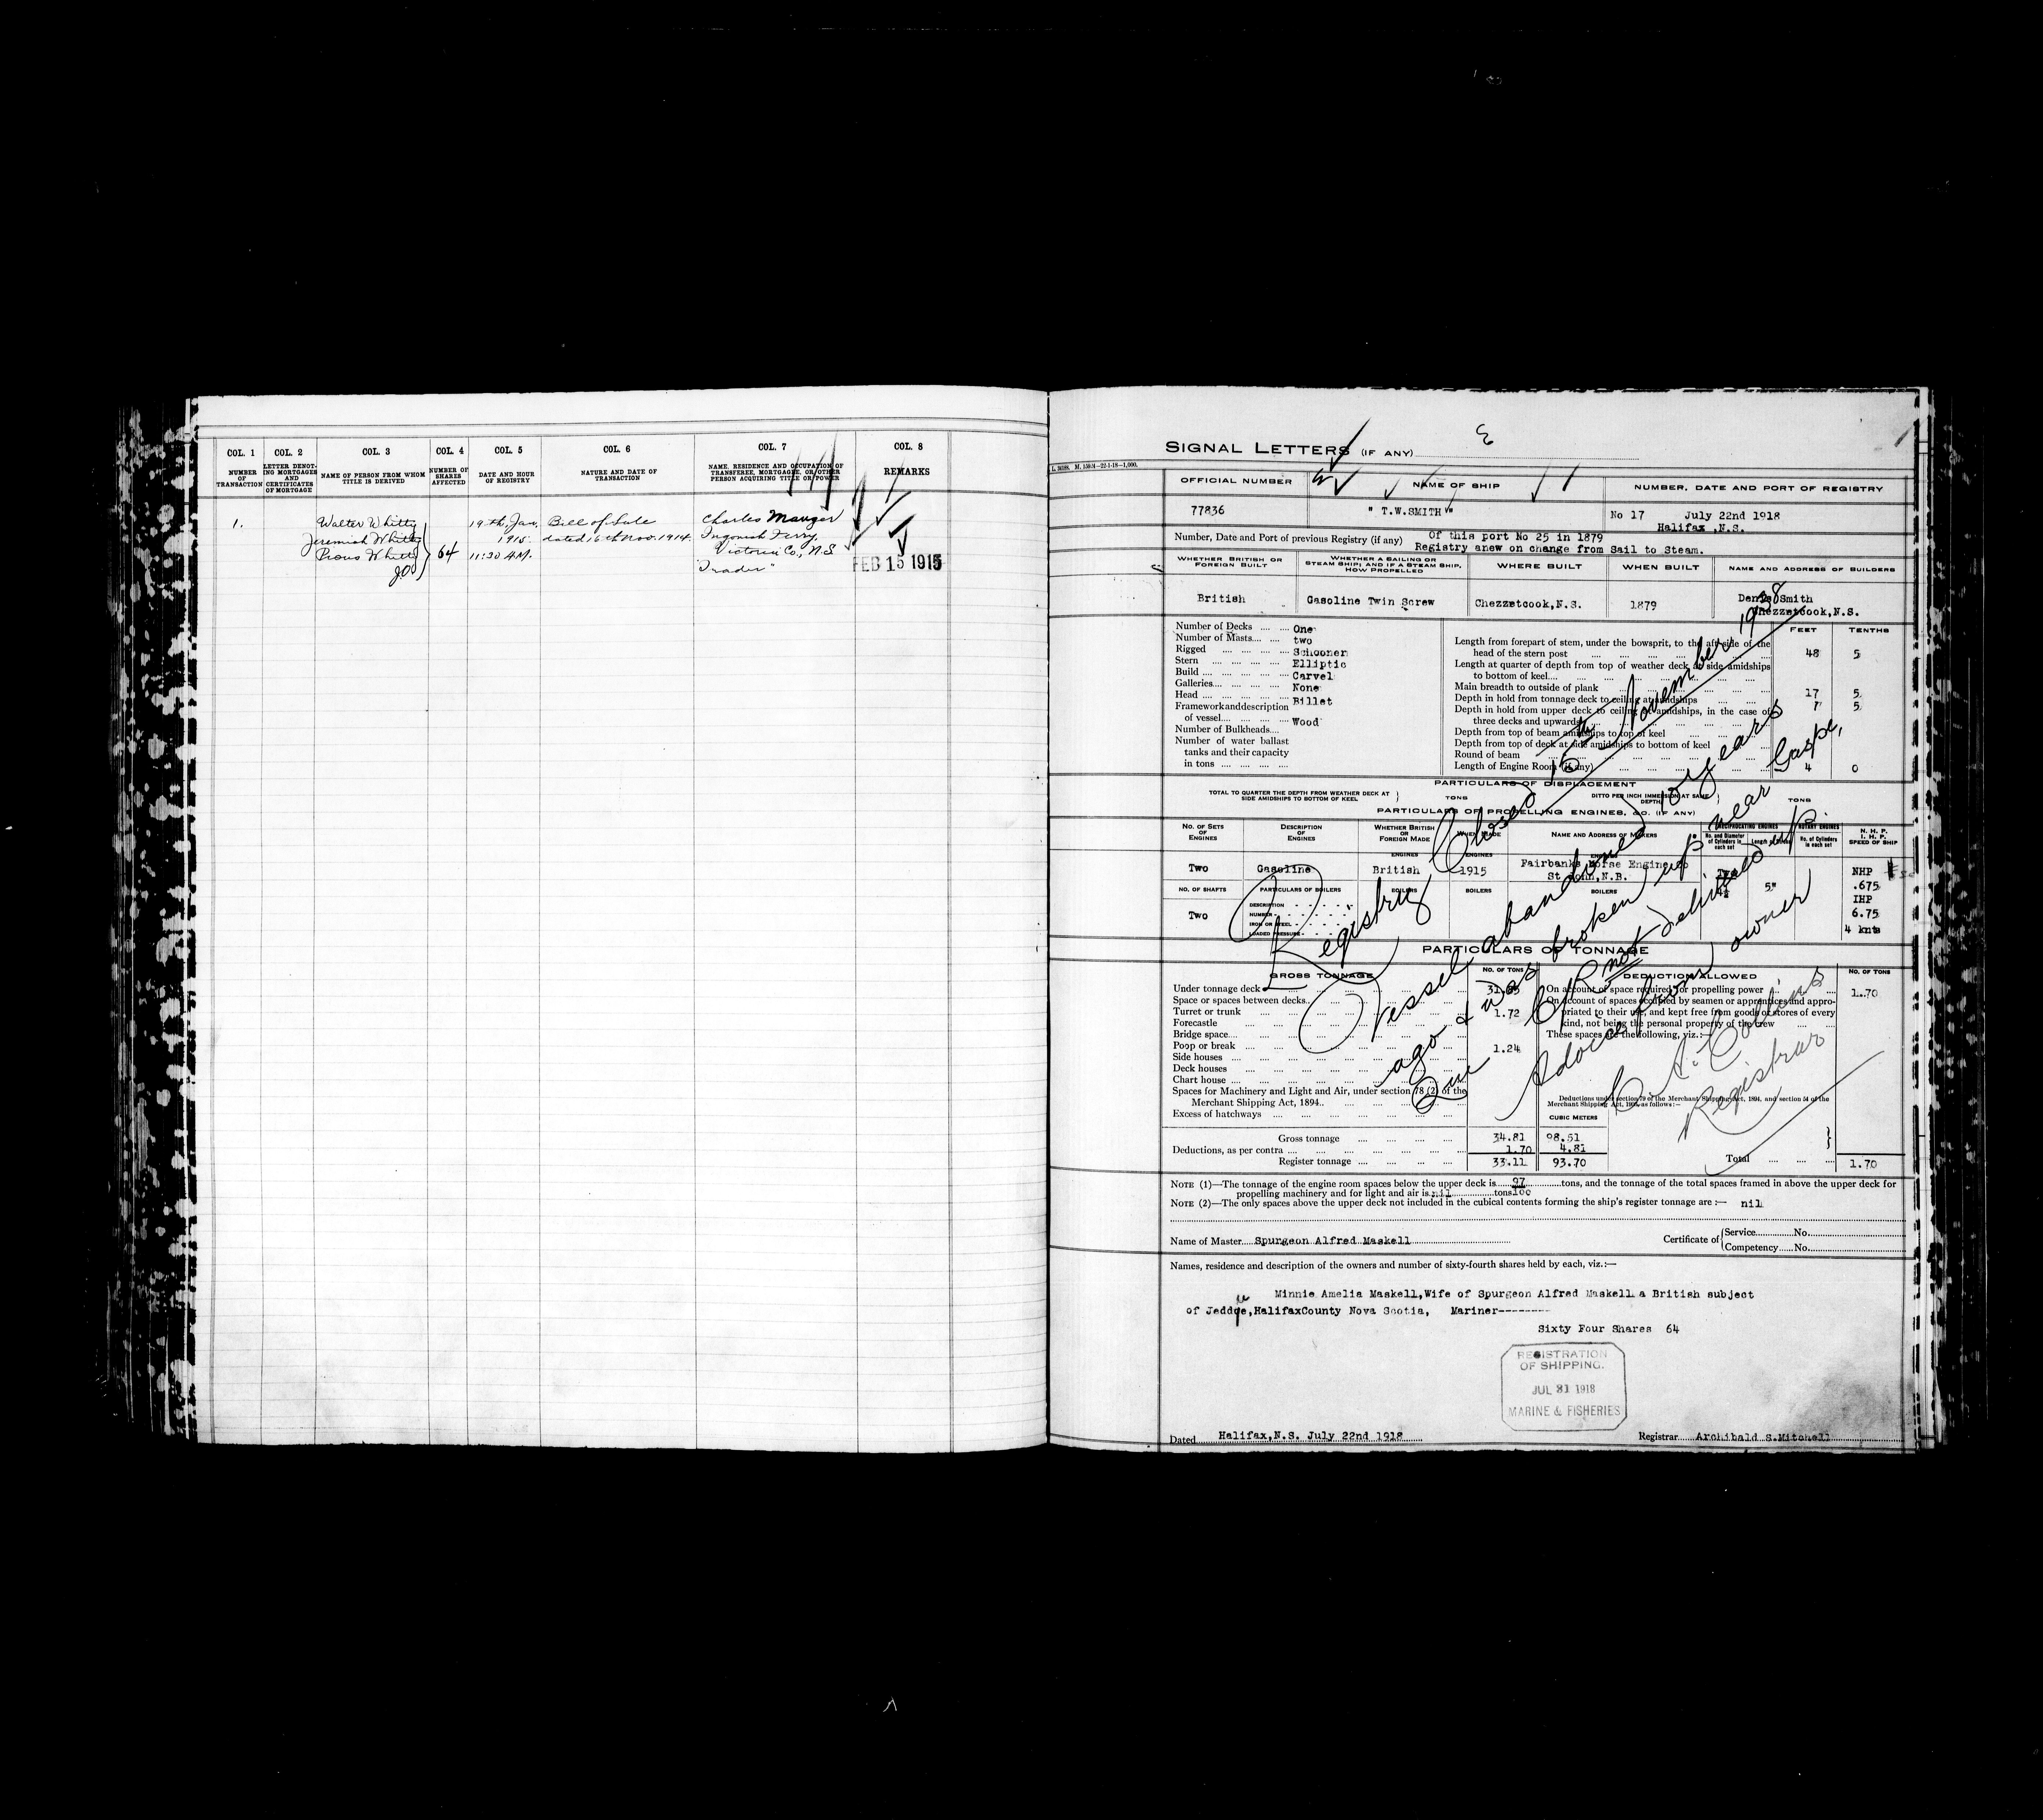 COL. 1 COL. 2 COL. 3 COL. 4 COL. 5 COL. 6 COL. 7 COL. 8
NUMBER OF TRANSACTION
LETTER DENOTING MORTGAGES AND CERTIFICATES OF MORTGAGE
NAME OF PERSON FROM WHOM TITLE IS DERIVED
NUMBER OF SHARES AFFECTED
DATE AND HOUR OF REGISTRY
NATURE AND DATE OF TRANSACTION
NAME, RESIDENCE AND OCCUPATION OF TRANSFEREE, MORTGAGEE, OR OTHER PERSON ACQUIRING TITLE OR POWER
REMARKS
1. Walter Whitty 19th Jan. Bill of Sale Charles Mauger
Jeremiah Whitty 1915 dated 16th Nov. 1914 Ingonish Ferry,
Pious Whitty 64 11:30 A.M. Victoria Co, N.S
JO Trader"
FEB 15 1915
SIGNAL LETTERS (IF ANY)
OFFICIAL NUMBER NAME OF SHIP NUMBER, DATE AND PORT OF REGISTRY
77836 " T.W.SMITH " No 17 July 22nd 1918
Halifax ,N.S.
Number, Date and Port of previous Registry (if any) Of this port No 25 in 1879
Registry anew on change from Sail to Steam.
WHETHER BRITISH OR FOREIGN BUILT
WHETHER A SAILING OR STEAM SHIP; AND IF A STEAM SHIP, HOW PROPELLED
WHERE BUILT WHEN BUILT NAME AND ADDRESS OF BUILDERS
British Gasoline Twin Screw Chezzetcook,N.S. 1879 Denis Smith
Chezzetcook,N.S.
Number of Decks One
Number of Masts two
Rigged Schooner
Stern Elliptic
Build Carvel
Galleries None
Head Billet
Framework and description
of vessel Wood
Number of Bulkheads
Number of water ballast
tanks and their capacity
in tons
FEET TENTHS
Length from forepart of stem, under the bowsprit, to the aft side of the
head of the stern post 48 5
Length at quarter of depth from top of weather deck at side amidships
to bottom of keel
Main breadth to outside of plank 17 5
Depth in hold from tonnage deck to ceiling at amidships 7 5
Depth in hold from upper deck to ceiling at amidships, in the case of
three decks and upwards
Depth from top of beam amidships to top of keel
Depth from top of deck at side amidships to bottom of keel
Round of beam
Length of Engine Room (if any) 4 0
PARTICULARS OF DISPLACEMENT
TOTAL TO QUARTER THE DEPTH FROM WEATHER DECK AT SIDE AMIDSHIPS TO BOTTOM OF KEEL } TONS
DITTO PER INCH IMMERSION AT SAME DEPTH TONS
PARTICULARS OF PROPELLING ENGINES, &C. (IF ANY)
No. OF SETS OF ENGINES
DESCRIPTION OF ENGINES
WHETHER BRITISH OR FOREIGN MADE
WHEN MADE
NAME AND ADDRESS OF MAKERS
RECIPROCATING ENGINES
ROTARY ENGINES
No. of Cylinders in each set
N. H. P.
I. H. P.
SPEED OF SHIP
ENGINES ENGINES ENGINES
Two Gasoline British 1915 Fairbanks Morse Engine Co
St John,N.B.
5"
NHP
.675
IHP
6.75
4 knts
NO. OF SHAFTS PARTICULARS OF BOILERS BOILERS BOILERS BOILERS
Two
DESCRIPTION
NUMBER
IRON OR STEEL
LOADED PRESSURE
PARTICULARS OF TONNAGE
GROSS TONNAGE NO. OF TONS DEDUCTION ALLOWED NO. OF TONS
Under tonnage deck
Space or spaces between decks
Turret or trunk 1.72
Forecastle
Bridge space
Poop or break 1.24
Side houses
Deck houses
Chart house
Spaces for Machinery and Light and Air, under section 78 (2) of the
Merchant Shipping Act, 1894
Excess of hatchways
On account of space required for propelling power 1.70
On account of spaces occupied by seamen or apprentices and appropriated to their use, and kept free from goods or stores of every
kind, not being the personal property of the crew
These spaces are the following, viz.:—
Deductions under section 79 of the Merchant Shipping Act, 1894, and section 54 of the
Merchant Shipping Act, 1906, as follows:—
CUBIC METERS
Gross tonnage 34.81 98.51
Deductions, as per contra 1.70 4.81
Register tonnage 33.11 93.70
Total 1.70
NOTE (1)—The tonnage of the engine room spaces below the upper deck is 97/100 tons, and the tonnage of the total spaces framed in above the upper deck for
propelling machinery and for light and air is nil tons
NOTE (2)—The only spaces above the upper deck not included in the cubical contents forming the ship's register tonnage are :— nil
Name of Master Spurgeon Alfred Maskell
Certificate of { Service No.
Competency No.
Names, residence and description of the owners and number of sixty-fourth shares held by each, viz.:—
Minnie Amelia Maskell,Wife of Spurgeon Alfred Maskell a British subject
of Jeddore,HalifaxCounty Nova Scotia, Mariner--------
Sixty Four Shares 64
REGISTRATION
OF SHIPPING.
JUL 31 1918
MARINE & FISHERIES
Dated Halifax,N.S. July 22nd 1918
Registrar Archibald S.Mitchell
Registry Closed 15th November 1938
Vessel abandoned 10 years
ago & was broken up near Gaspe,
Que C/R not delivered up.
Advice from owner
C. A. Collins
Registrar